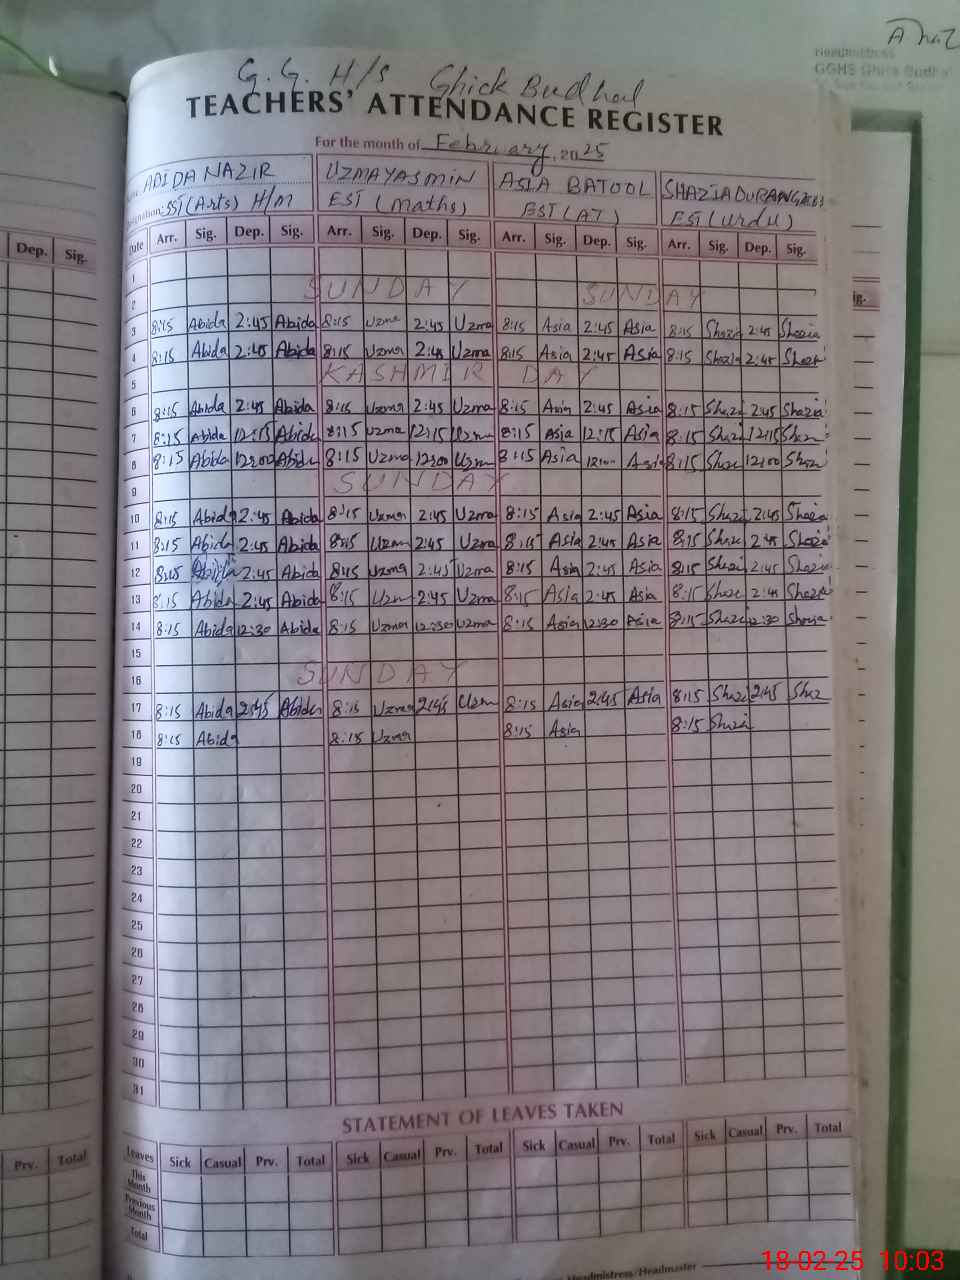 Headmistress
G. G. H/s Ghick Budhal
TEACHERS' ATTENDANCE REGISTER
For the month of February, 2025
ABIDA NAZIR UZMA YASMIN ASIA BATOOL SHAZIA DURANGZEB
Designation: SST (Arts) H/M EST (Maths) EST (AT) EST (Urdu)
Date Arr. Sig. Dep. Sig. Arr. Sig. Dep. Sig. Arr. Sig. Dep. Sig. Arr. Sig. Dep. Sig.
1
2 SUNDAY SUNDAY
3 8:15 Abida 2:45 Abida 8:15 Uzma 2:45 Uzma 8:15 Asia 2:45 Asia 8:15 Shazia 2:45 Shazia
4 8:15 Abida 2:45 Abida 8:15 Uzma 2:45 Uzma 8:15 Asia 2:45 Asia 8:15 Shazia 2:45 Shazi
5 KASHMIR DAY
6 8:15 Abida 2:45 Abida 8:15 Uzma 2:45 Uzma 8:15 Asia 2:45 Asia 8:15 Shazi 2:45 Shazia
7 8:15 Abida 12:15 Abida 8:15 Uzma 12:15 Uzma 8:15 Asia 12:15 Asia 8:15 Shazi 12:15 Shazi
8 8:15 Abida 12:00 Abida 8:15 Uzma 12:00 Uzma 8:15 Asia 12:00 Asia 8:15 Shazi 12:00 Shazi
9 SUNDAY
10 8:15 Abida 2:45 Abida 8:15 Uzma 2:45 Uzma 8:15 Asia 2:45 Asia 8:15 Shazi 2:45 Shazia
11 8:15 Abida 2:45 Abida 8:15 Uzma 2:45 Uzma 8:15 Asia 2:45 Asia 8:15 Shazi 2:45 Shazia
12 8:15 Abida 2:45 Abida 8:15 Uzma 2:45 Uzma 8:15 Asia 2:45 Asia 8:15 Shazi 2:45 Shazia
13 8:15 Abida 2:45 Abida 8:15 Uzma 2:45 Uzma 8:15 Asia 2:45 Asia 8:15 Shazi 2:45 Shazia
14 8:15 Abida 12:30 Abida 8:15 Uzma 12:30 Uzma 8:15 Asia 12:30 Asia 8:15 Shazi 12:30 Shazia
15
16 SUNDAY
17 8:15 Abida 2:45 Abida 8:15 Uzma 2:45 Uzma 8:15 Asia 2:45 Asia 8:15 Shazi 2:45 Shaz
18 8:15 Abida 8:15 Uzma 8:15 Asia 8:15 Shazi
19
20
21
22
23
24
25
26
27
28
29
30
31
STATEMENT OF LEAVES TAKEN
Leaves Sick Casual Prv. Total Sick Casual Prv. Total Sick Casual Prv. Total Sick Casual Prv. Total
This Month
Previous Month
Total
Headmistress/Headmaster
Dep. Sig.
Prv. Total
18-02-25 10:03